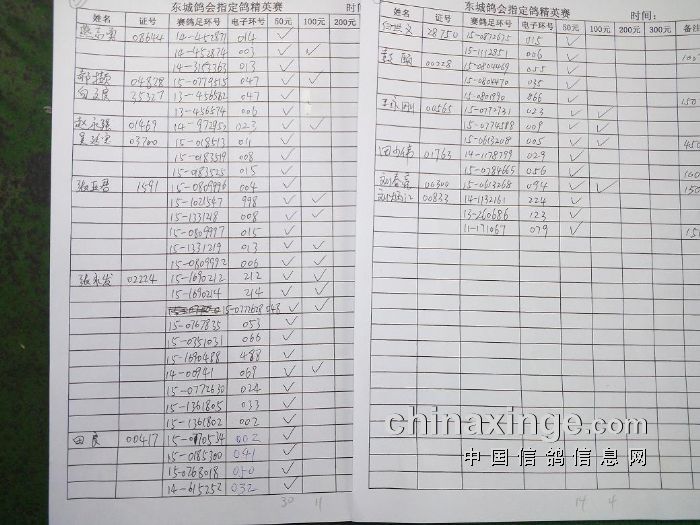 东城鸽会指定鸽精英赛
时间
姓名 证号 赛鸽足环号 电子环号 50元 100元 200元
08644 14-452871 014 ✓
14-452874 003 ✓ ✓
14-3152363 013 ✓
04828 15-0779515 047 ✓ ✓
35327 13-456562 047 ✓
13-456574 006 ✓
赵永强 01469 14-972953 023 ✓ ✓
03700 15-018513 011 ✓
15-0183519 008 ✓
15-0183525 015 ✓
1591 15-0809996 004 ✓
15-1021547 998 ✓ ✓
15-1331218 008 ✓ ✓
15-0809997 015 ✓
15-1331219 013 ✓ ✓
15-0809992 006 ✓ ✓
张永发 02224 15-1690212 212 ✓ ✓
15-1690214 214 ✓ ✓
15-0772628 048 ✓ ✓
15-0767835 053 ✓
15-0351031 066 ✓
15-1690488 488 ✓
14-00941 069 ✓ ✓
15-0772630 024 ✓
15-1361805 033 ✓
15-1361802 002 ✓
田良 00417 15-0170534 002 ✓
15-0185300 041 ✓
15-0268018 050 ✓
14-615252 032 ✓
30 11
东城鸽会指定鸽精英赛
时间：
姓名 证号 赛鸽足环号 电子环号 50元 100元 200元 300元 备注
28750 15-0872635 015 ✓
00028 15-1112851 006 ✓
15-0804469 055 ✓
15-0804470 035 ✓
15-0801990 066 ✓
04565 15-0772731 023 ✓ ✓
15-0774588 009 ✓ ✓
15-0613208 005 ✓ ✓
01763 14-1178799 029 ✓
15-0784665 056 ✓
00300 15-0613268 094 ✓ ✓
00833 14-1132161 224 ✓
13-260686 123 ✓
11-171067 079 ✓
150
450
150
14 4
chinaxinge.com
中国信鸽信息网